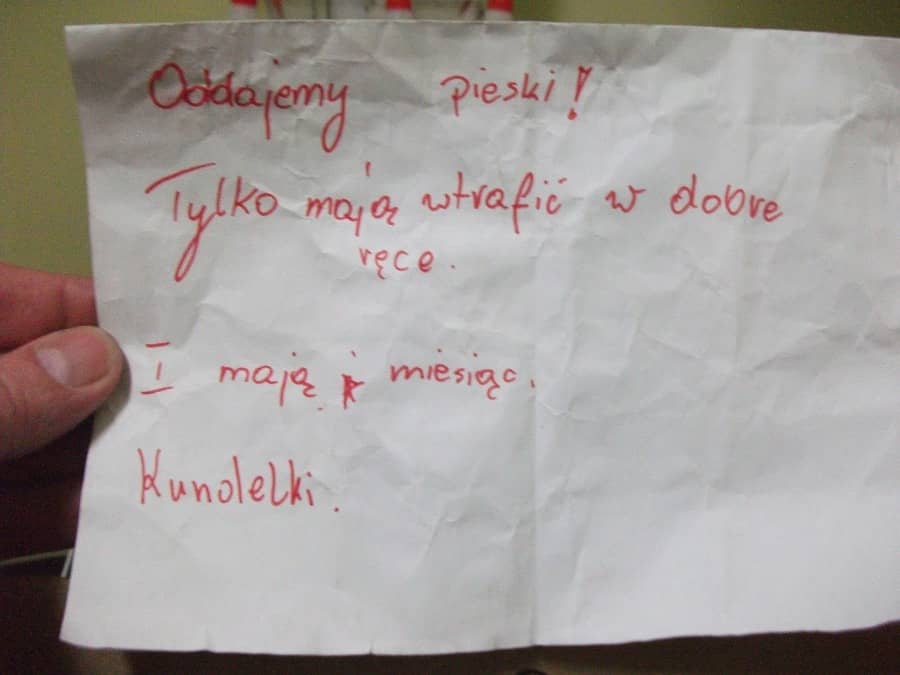 Oddajemy pieski!
Tylko mają wtrafić w dobre
ręce.
I mają miesiąc.
Kundelki.